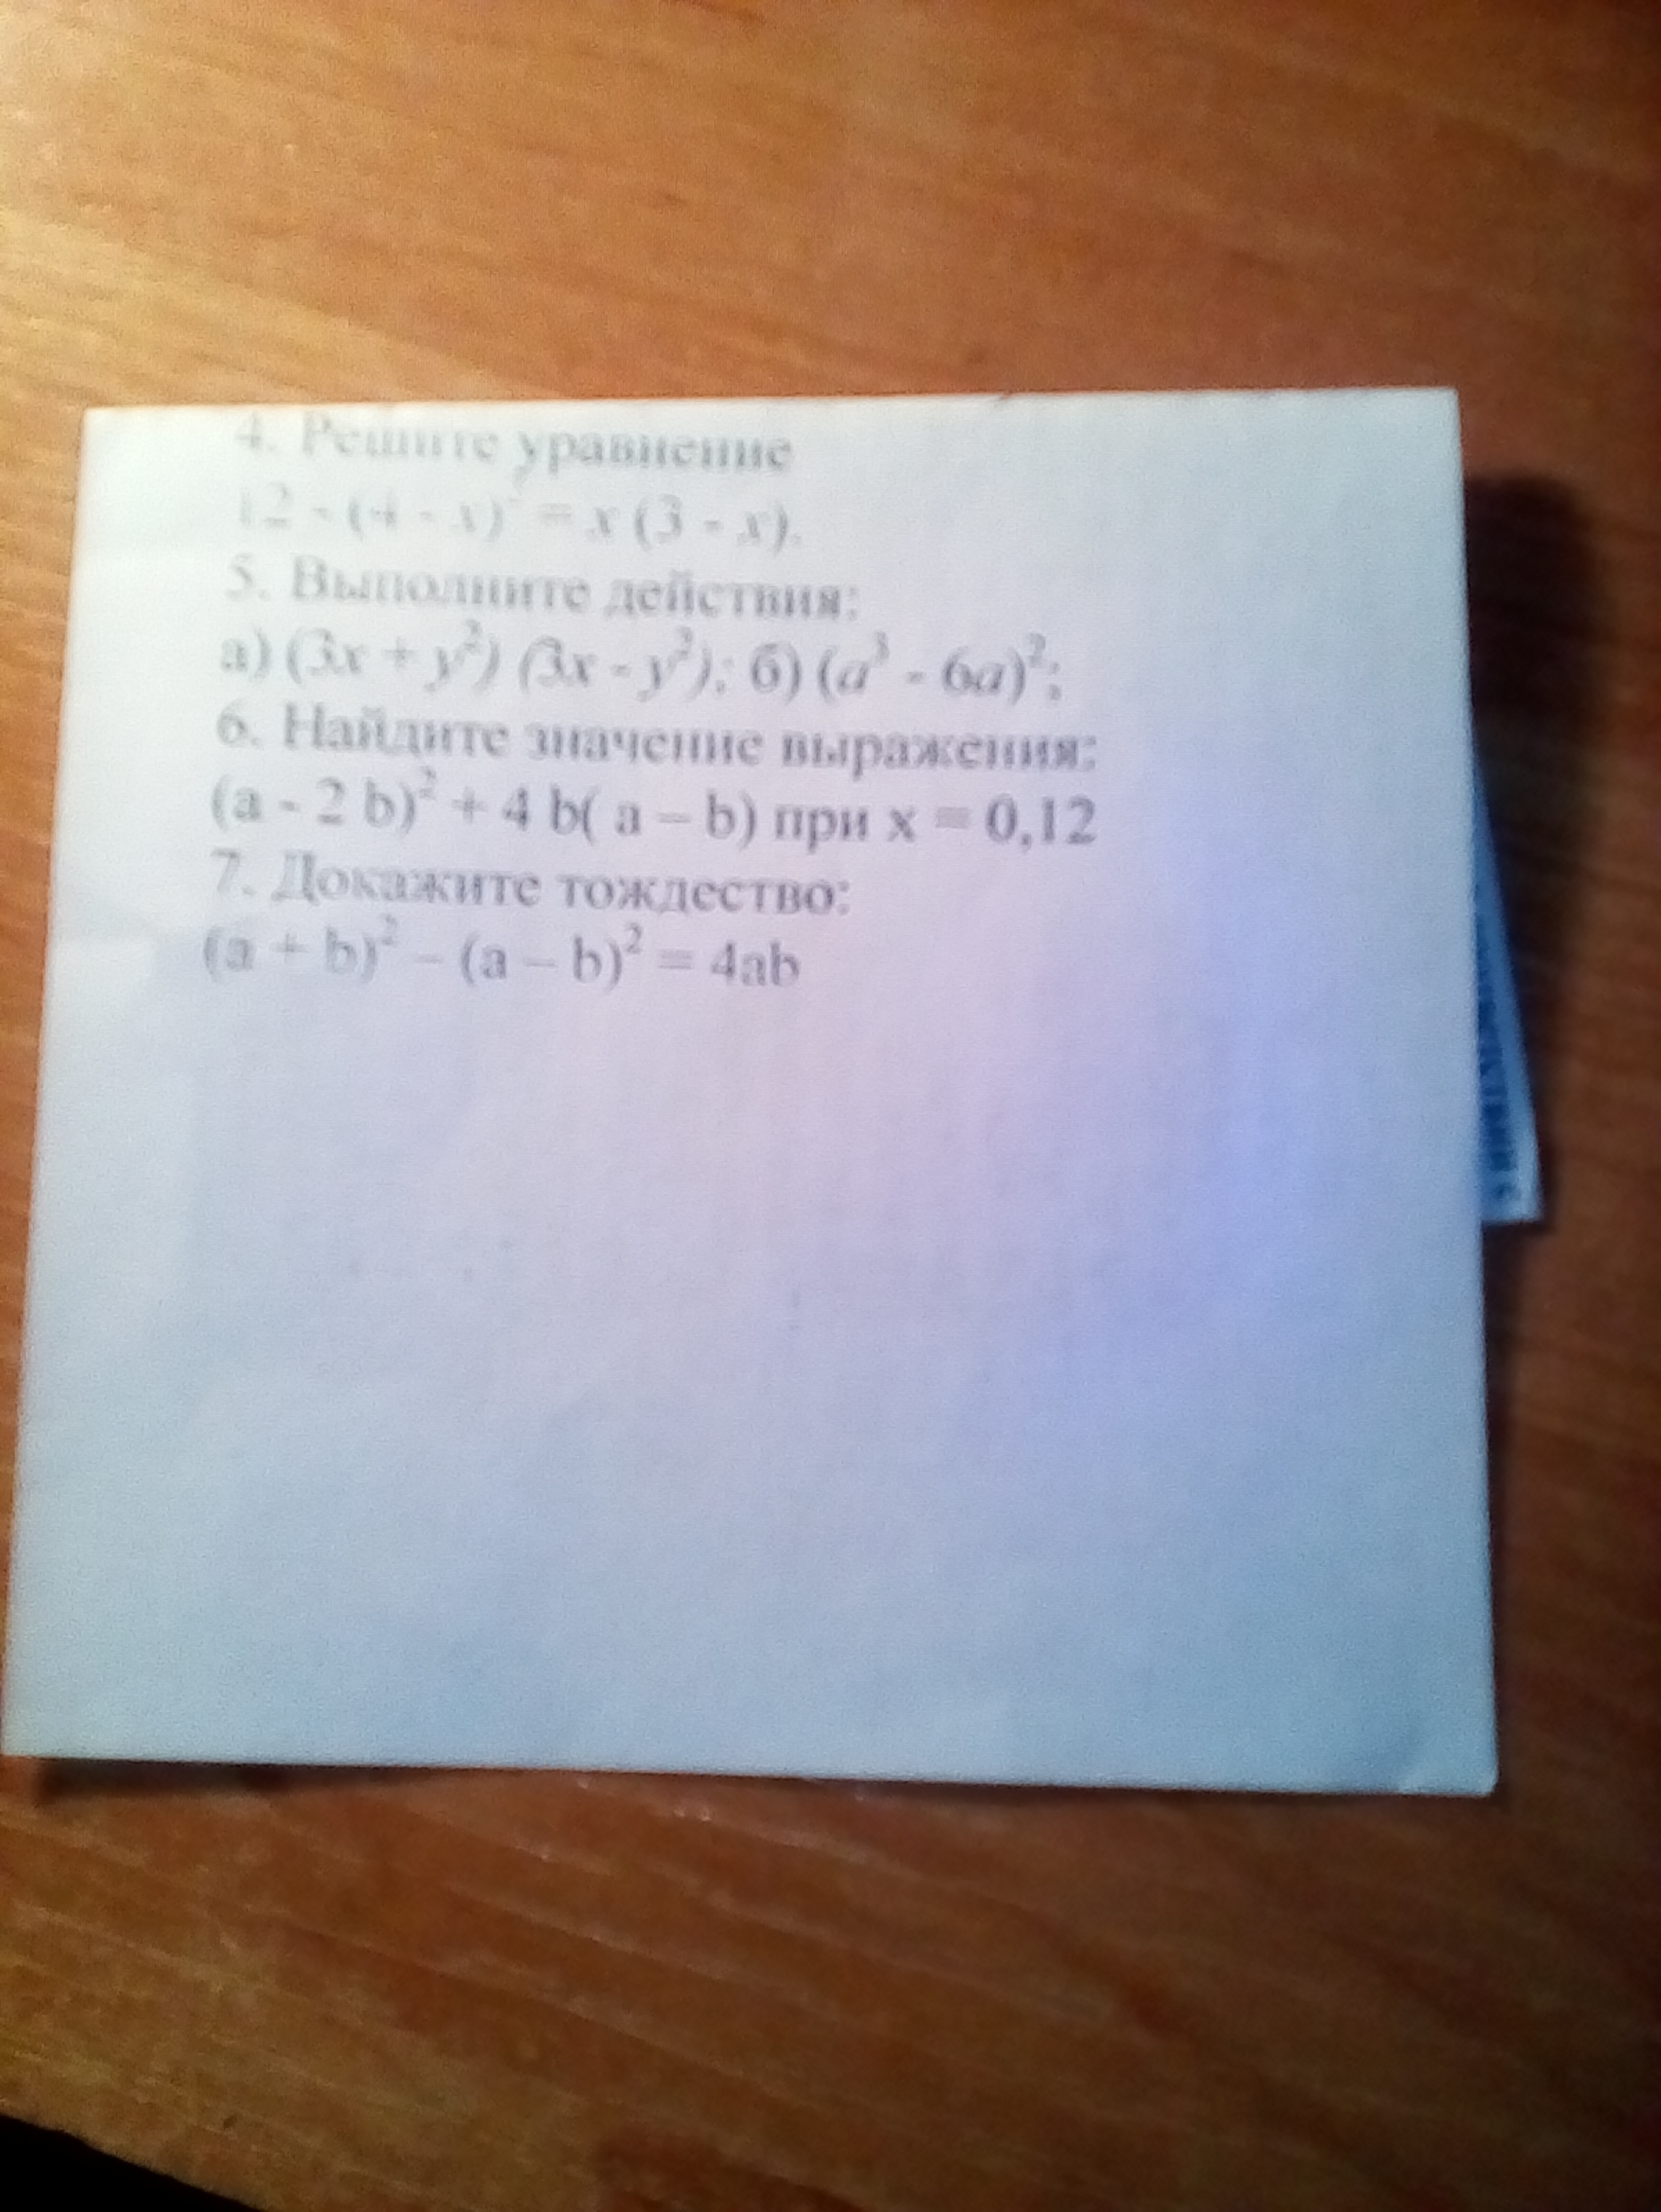 4. Решите уравнение
12 - (4 - x)² = x (3 - x).
5. Выполните действия:
а) (3x + y²) (3x - y²); б) (a³ - 6a)²;
6. Найдите значение выражения:
(a - 2 b)² + 4 b( a – b) при x = 0,12
7. Докажите тождество:
(a + b)² – (a – b)² = 4ab